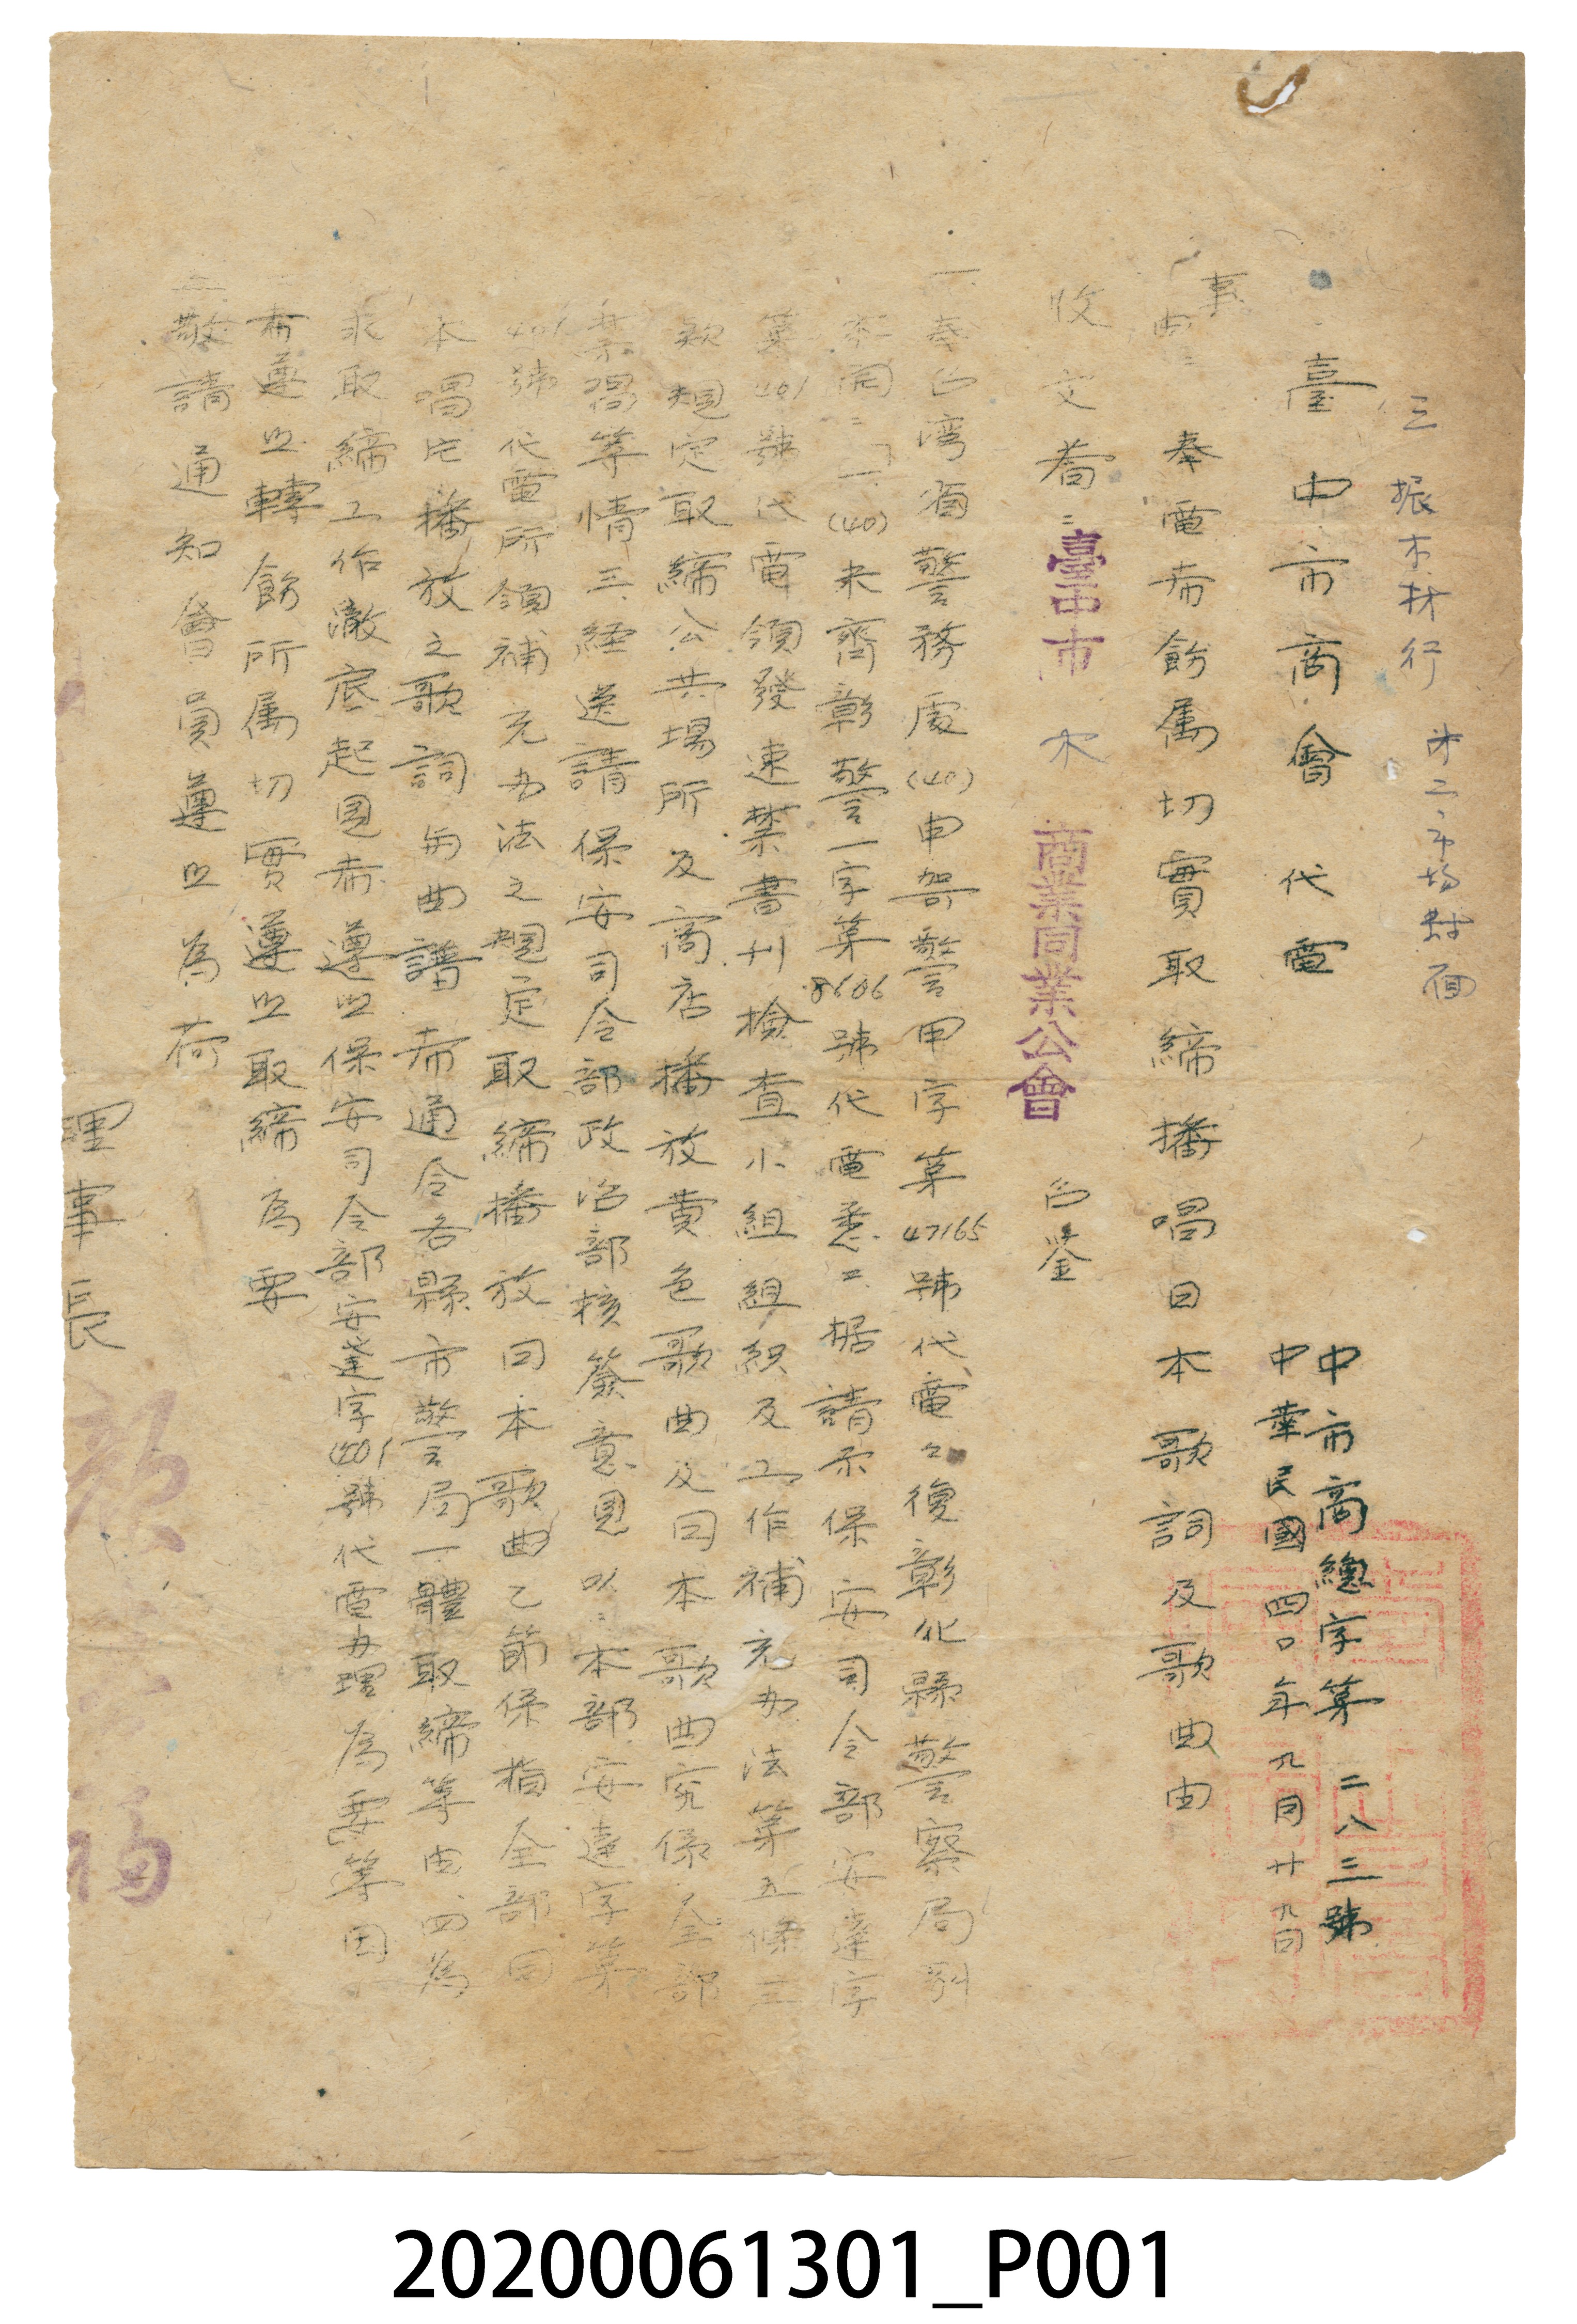 三振木材行 第二市場對面
臺中市商會代電
中市商總字第二八三號
中華民國四〇年九月廿九日
事由：奉電希飭屬切實取締播唱日本歌詞及歌曲由
收文者：臺中市木商業同業公會 台鑒
一、奉台湾省警務處(40)申哿警甲字第47165號代電復彰化縣警察局副
本開：「一、(40)未齊彰警一字第8606號代電悉二、据請示保安司令部安達字
第401號代電頒發連禁書刊檢查小組組織及工作補充办法第五條三
款規定取締公共場所及商店播放黄色歌曲及日本歌曲究係全部
禁唱等情三、経送請保安司令部政治部核簽意見以：本部安達字第
401號代電所頒補充办法之規定取締播放日本歌曲乙節係指全部日
本唱片播放之歌詞與曲譜希通令各縣市警局一體取締等由四、為
求取締工作澈底起見希遵照保安司令部安達字401號代電办理為要等因
希遵照轉飭所属切實遵照取締為要
二、敬請通知會員遵照為荷
理事長 顏 福
20200061301_P001